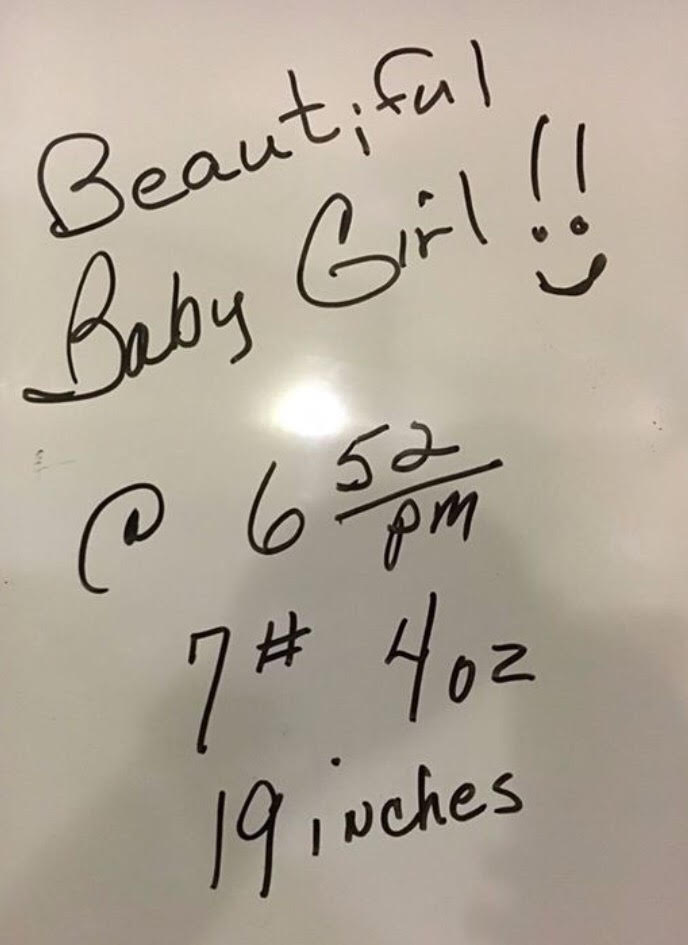 Beautiful
Baby Girl !!
@ 6 52/pm
7# 4oz
19 inches